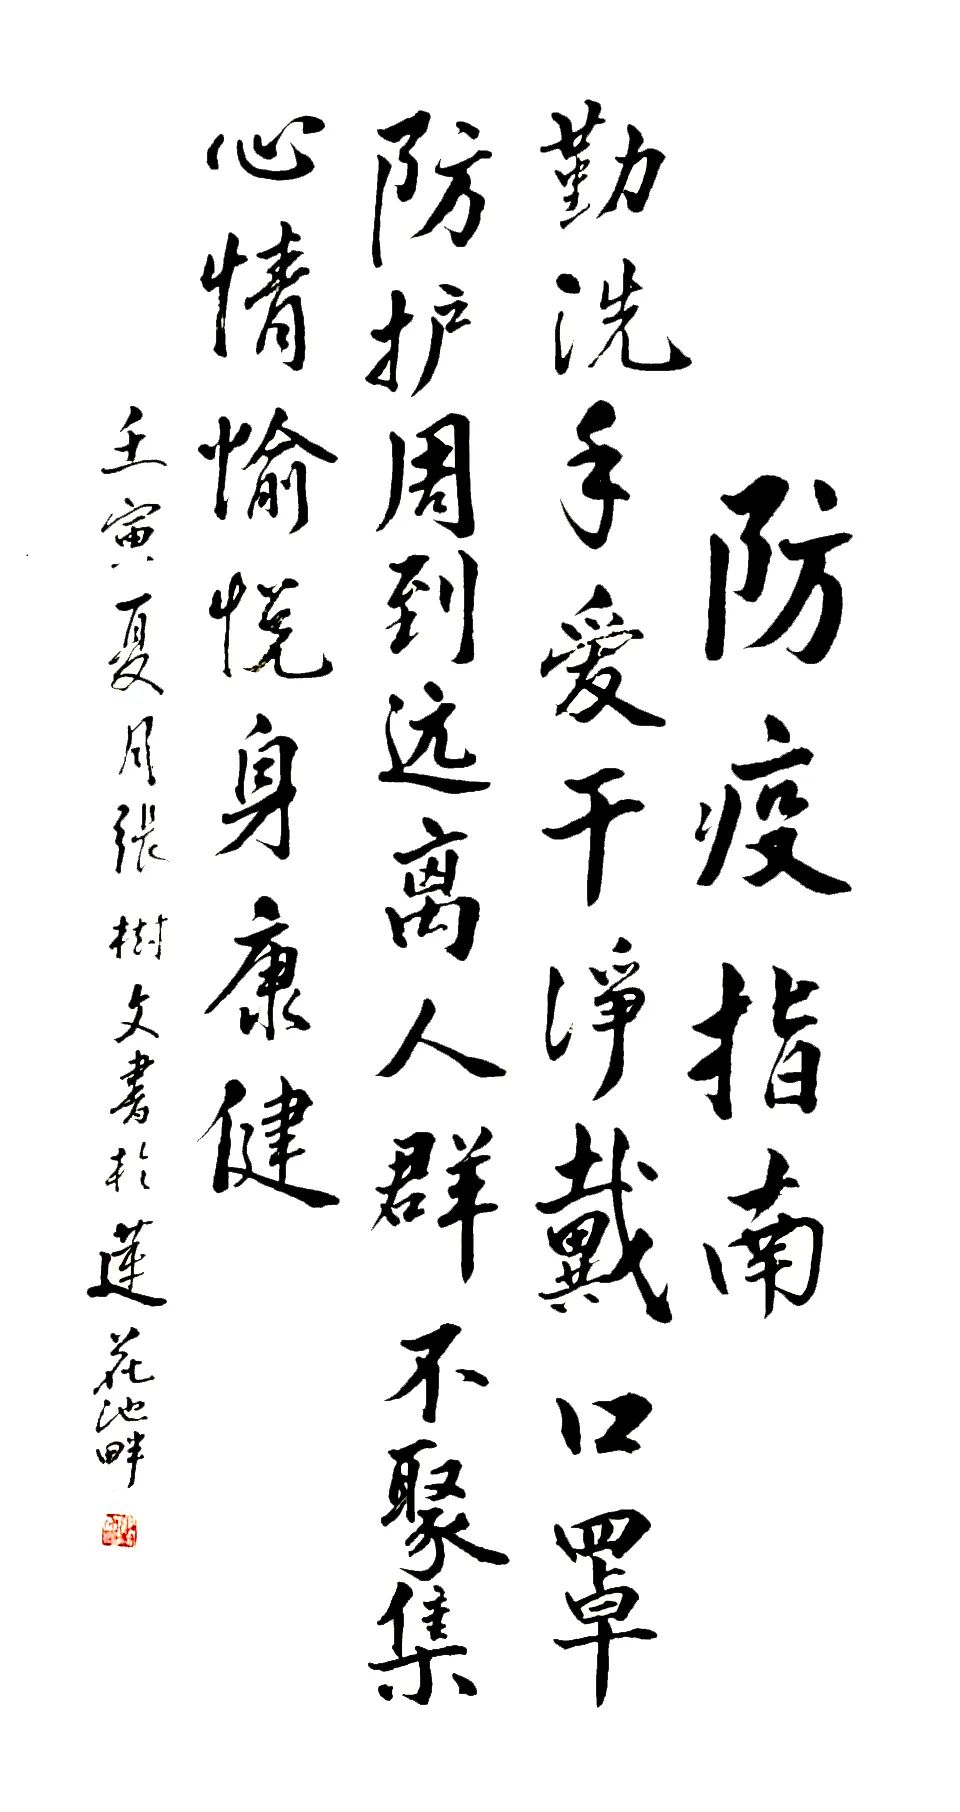 防疫指南
勤洗手爱干净戴口罩
防护周到远离人群不聚集
心情愉悦身康健
壬寅夏月張樹文書於蓮花池畔